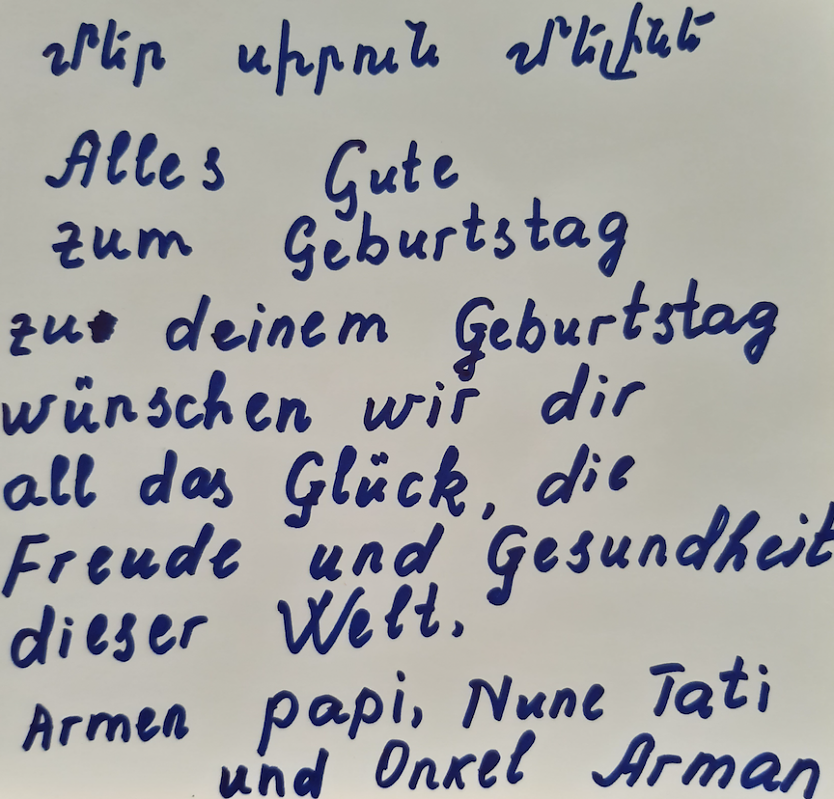 Մեր սիրուն Մելինե
Alles Gute
zum Geburtstag
zu deinem Geburtstag
wünschen wir dir
all das Glück, die
Freude und Gesundheit
dieser Welt,
Armen papi, Nune Tati
und Onkel Arman